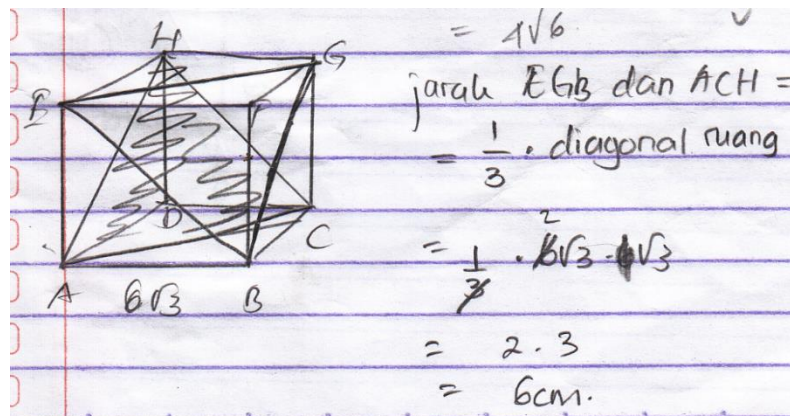 = 4√6
H
G
E
F
D
C
A 6√3 B
jarak EGB dan ACH =
= 1/3 . diagonal ruang
= 1/3 . 6√3 . √3
2
= 2 . 3
= 6cm.